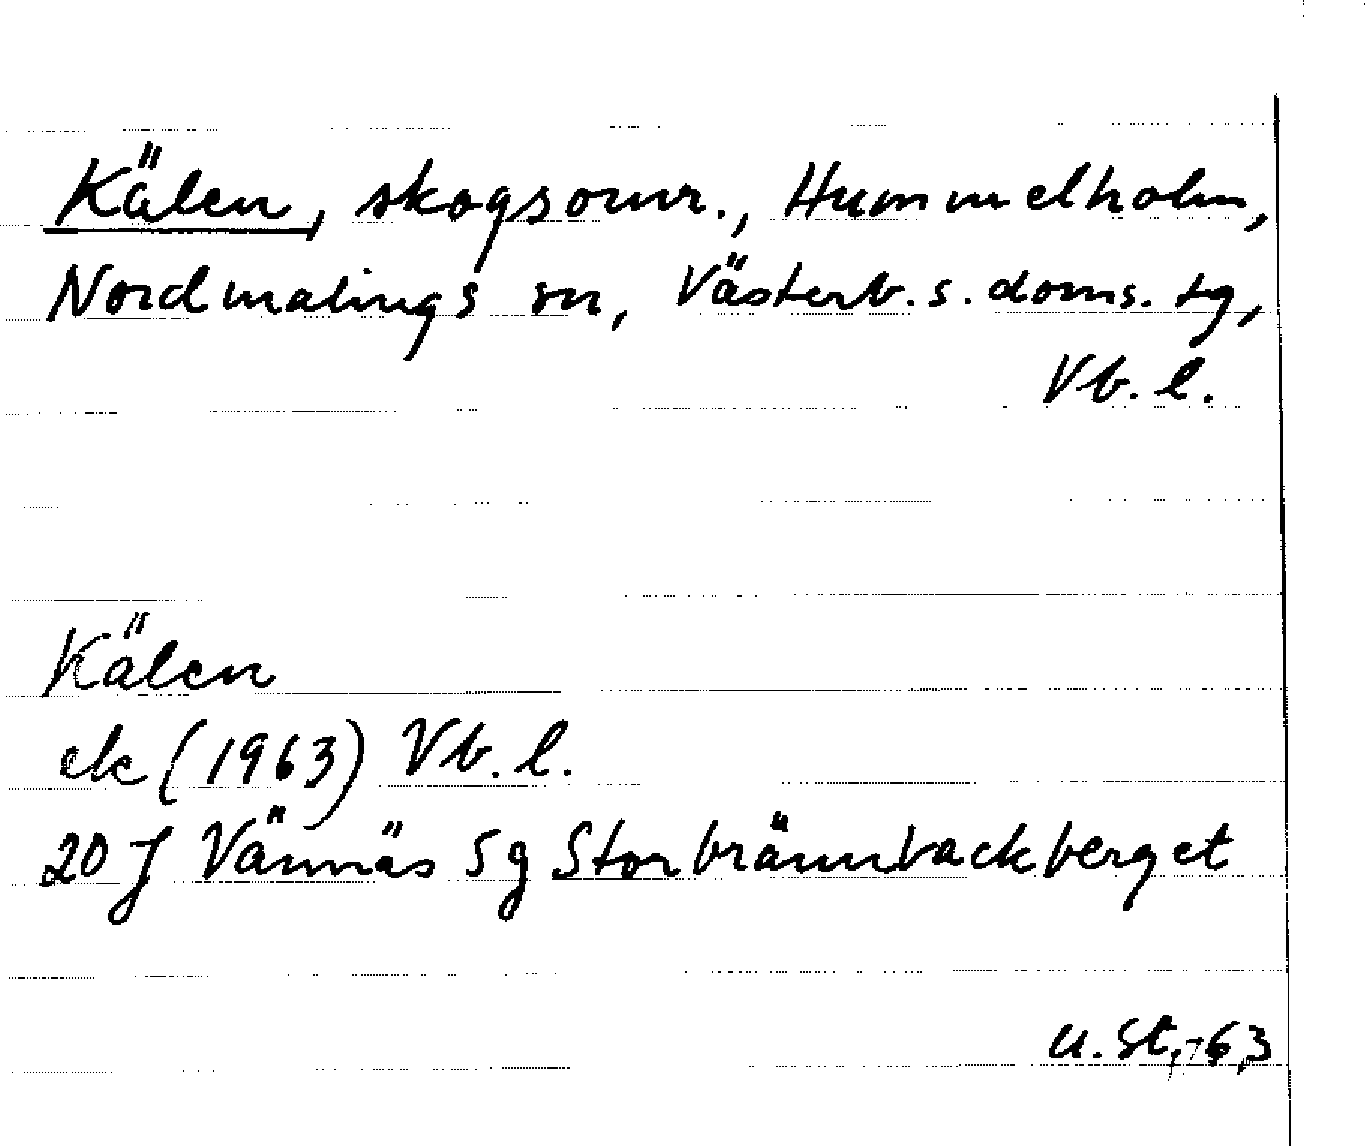 Kälen, skogsomr., Hummelholm,
Nordmalings sn, Västerb. s. doms. tg,
Vb. l.
Kälen
ek (1963) Vb. l.
20 J Vännäs 5g Storbrännbackberget
U. St, -63